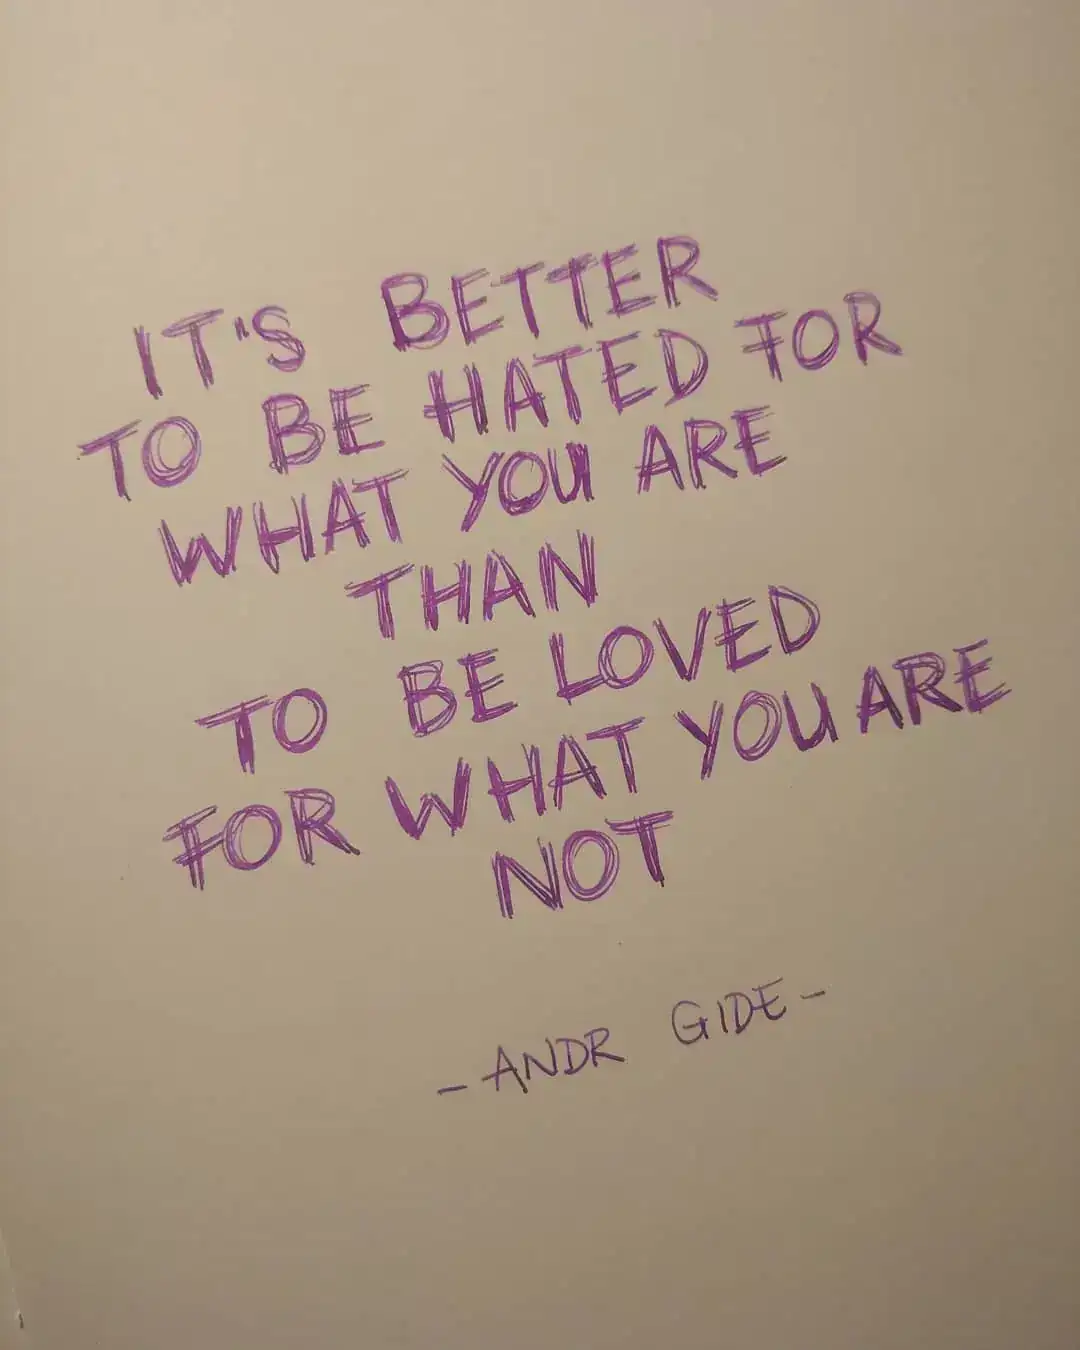 IT'S BETTER
TO BE HATED FOR
WHAT YOU ARE
THAN
TO BE LOVED
FOR WHAT YOU ARE
NOT
- ANDR GIDE -